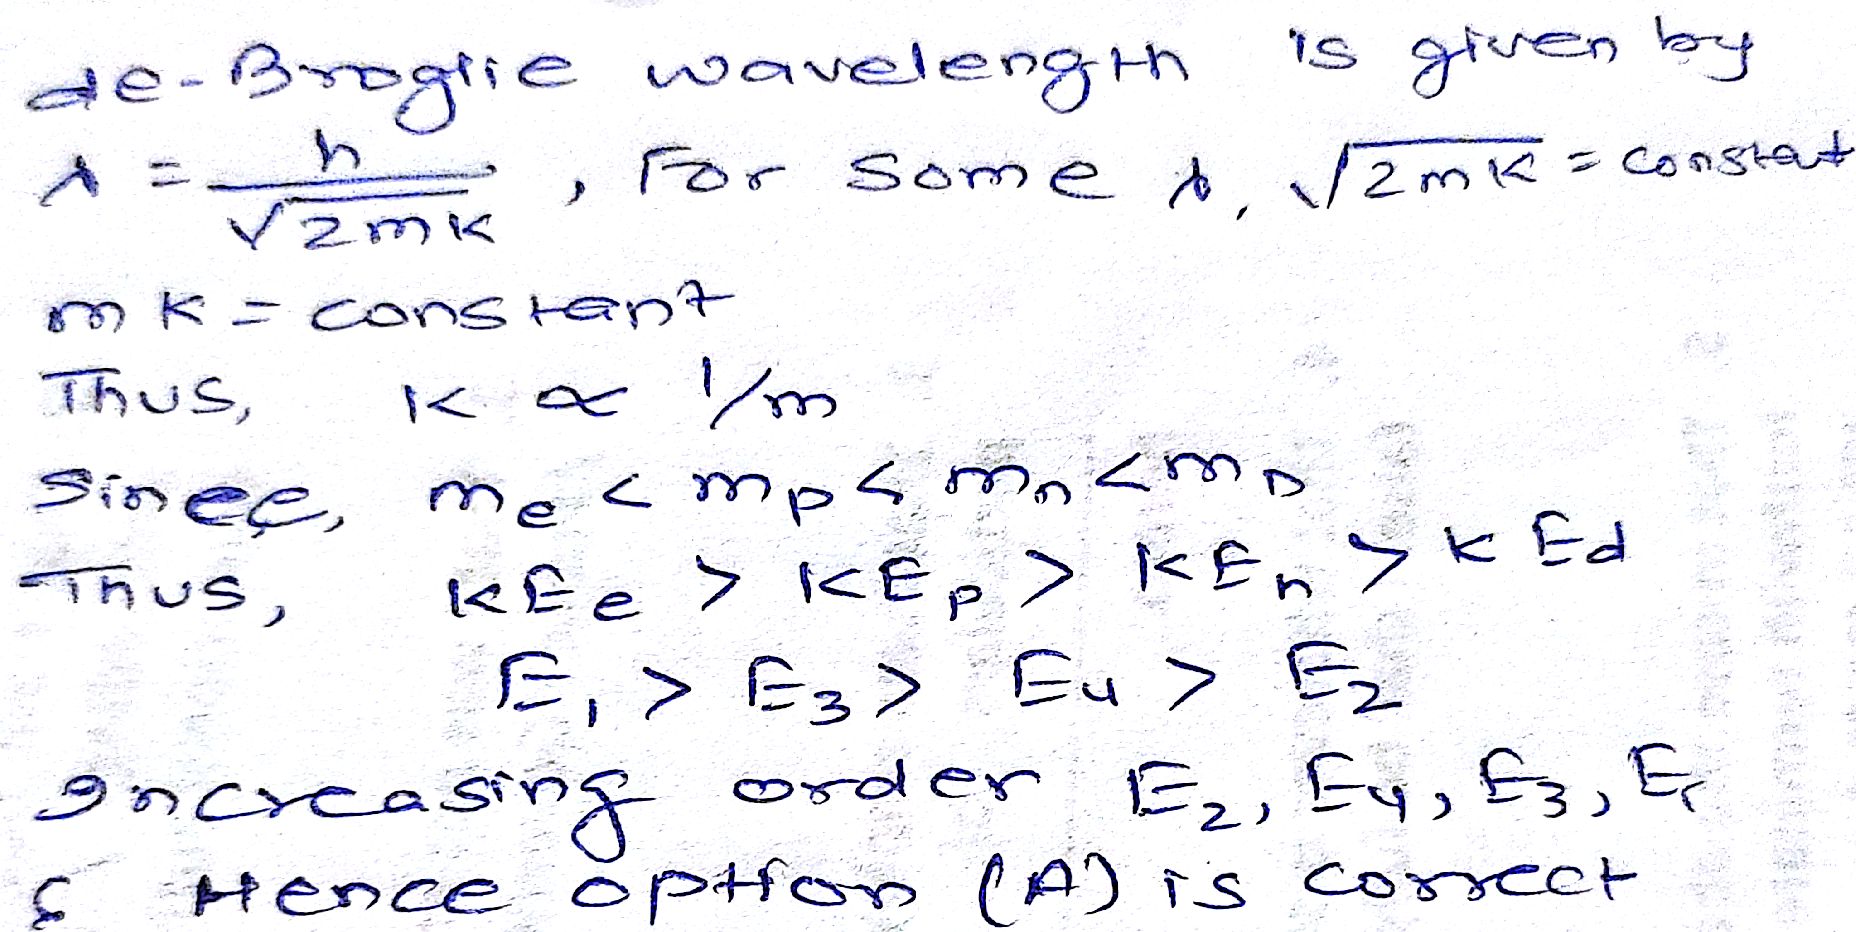 de-Broglie wavelength is given by
λ = h/√2mK , For some λ, √2mK = constant
mK = constant
Thus, K ∝ 1/m
Since, me < mp < mn < mD
Thus, KEe > KEp > KEn > KEd
E1 > E3 > E4 > E2
Increasing order E2, E4, E3, E1
Hence option (A) is correct